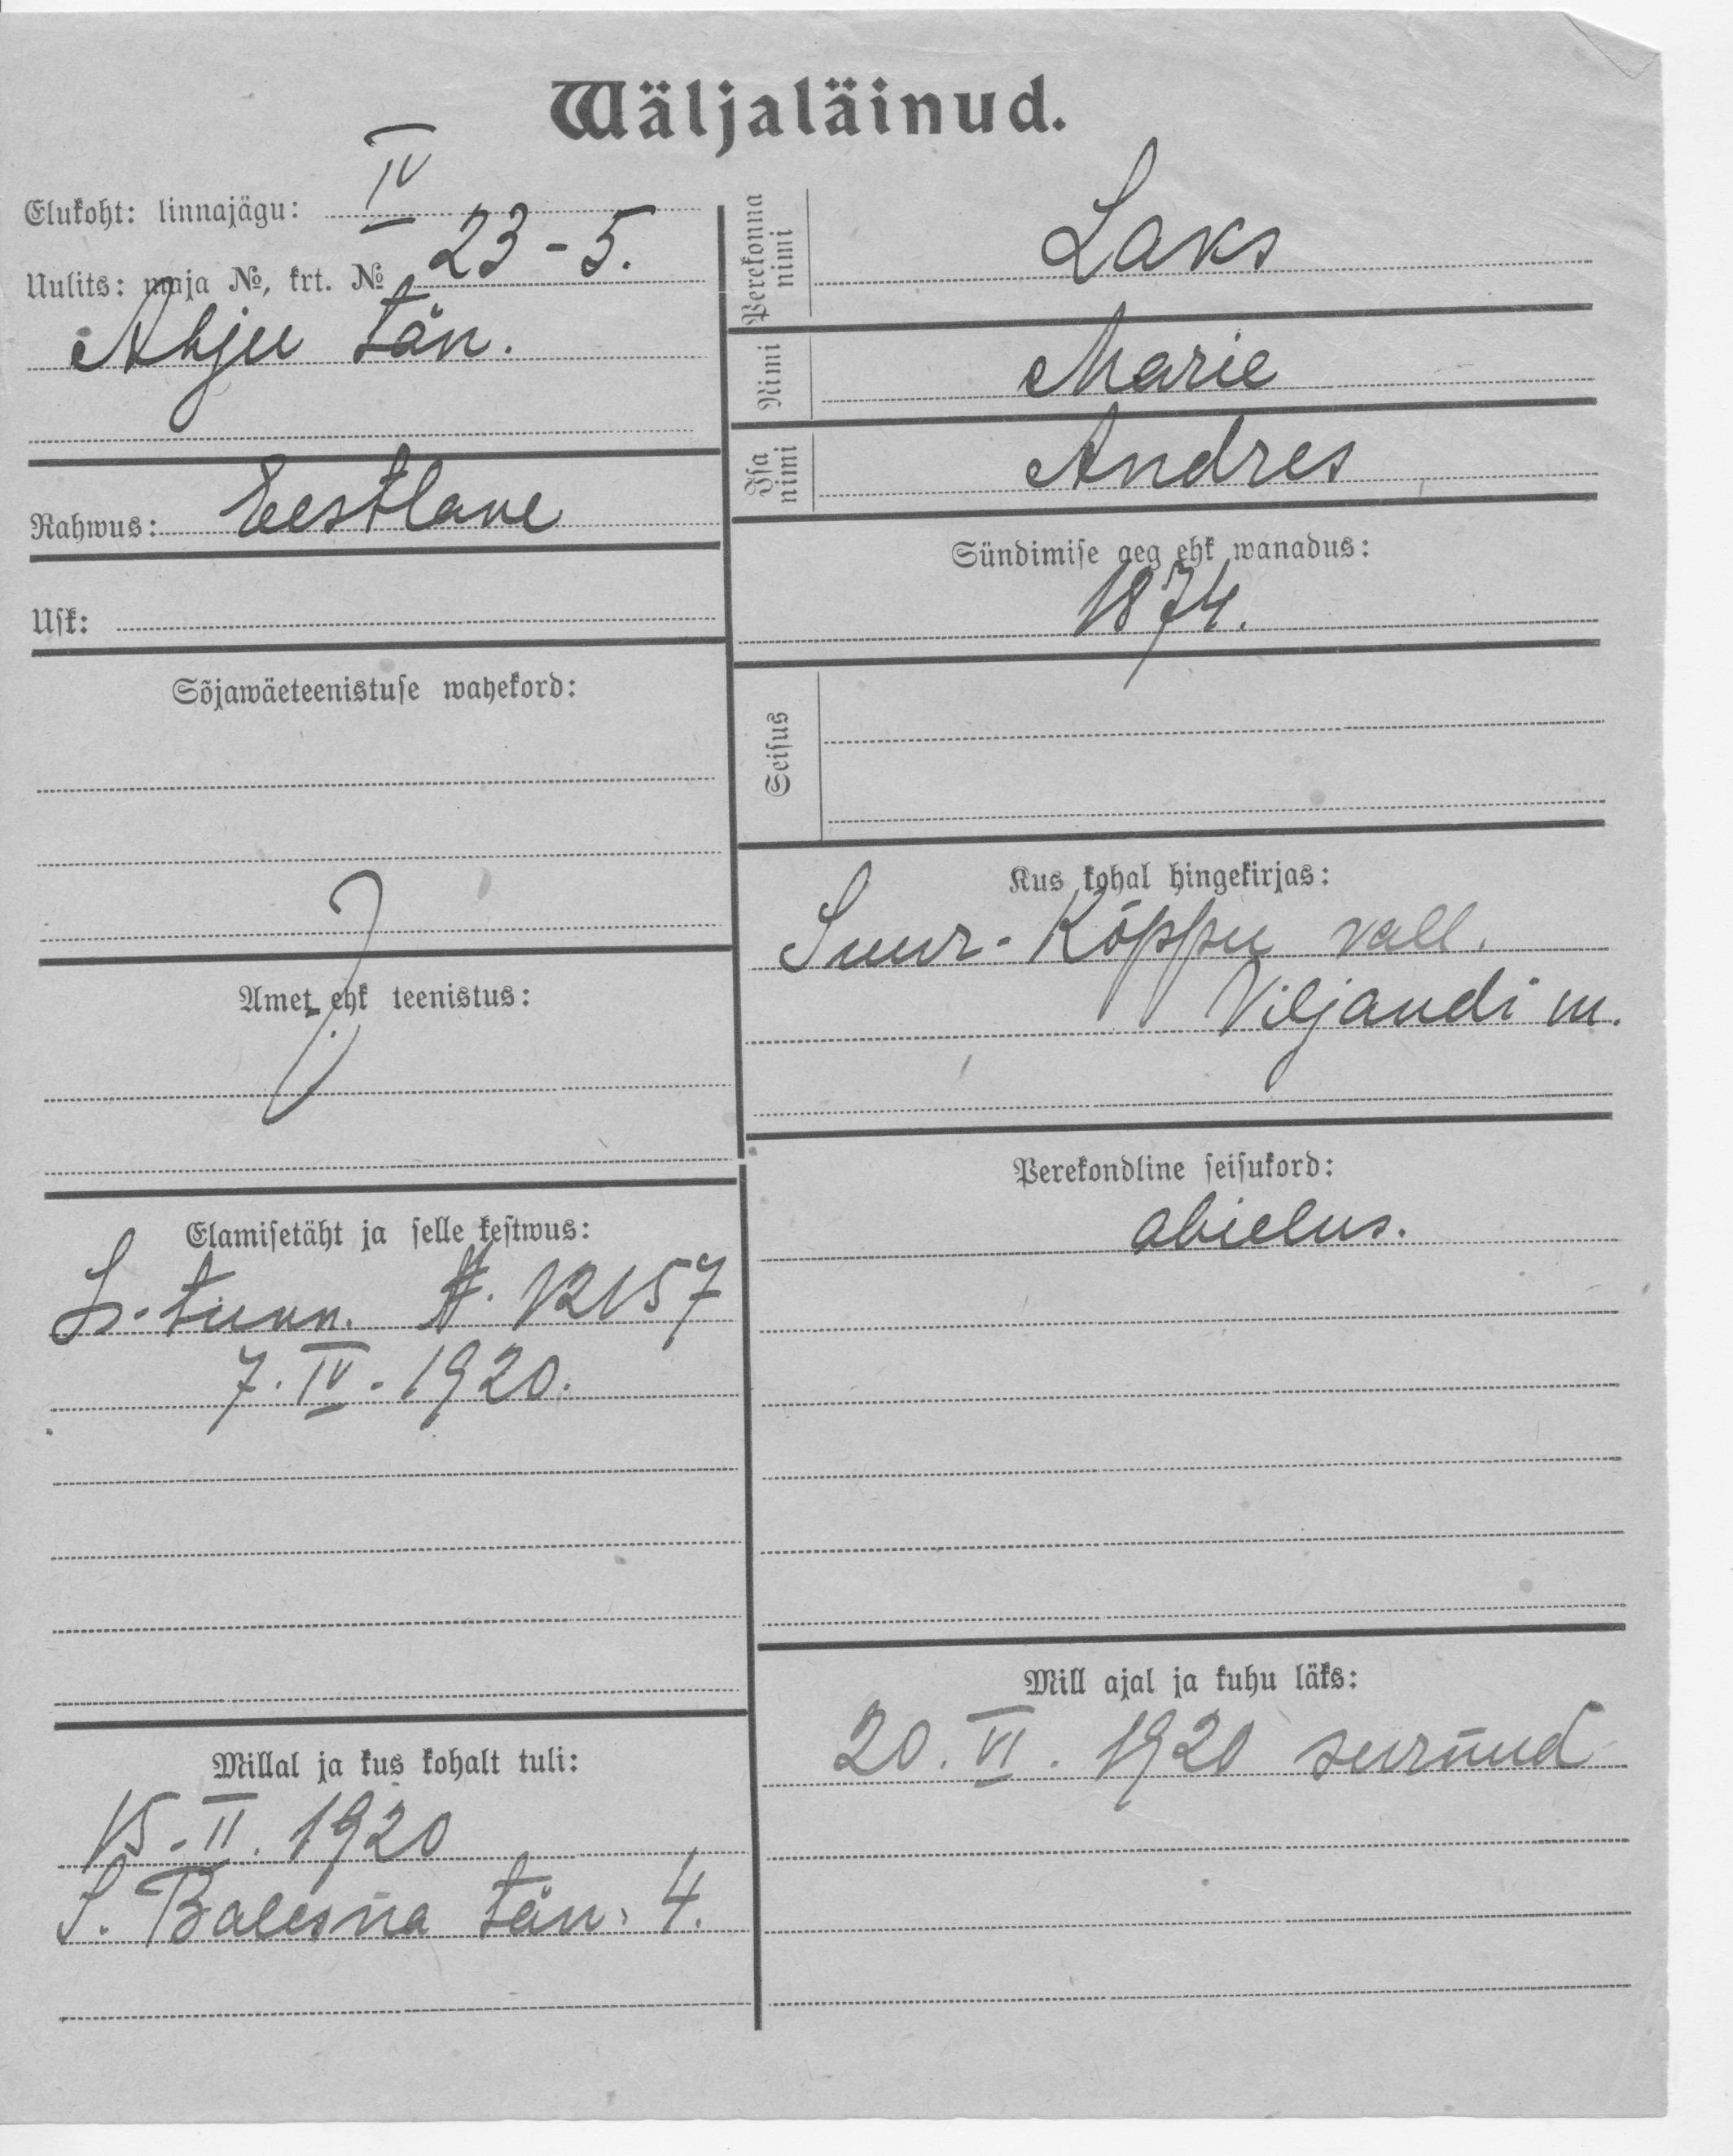 Wäljaläinud.
Elukoht: linnajägu: IV
Uulits: maja №, krt. № 23-5.
Ahju tän.
Rahwus: Eestlane
Usk:
Sõjawäeteenistuse wahekord:
Amet ehk teenistus:
Elamisetäht ja selle kestwus:
I. tunn. №. 12157
7. IV. 1920.
Millal ja kus kohalt tuli:
15. II. 1920
S. Balesna tän. 4.
Perekonna nimi Laks
Nimi Marie
Isa nimi Andres
Sündimise aeg ehk wanadus:
1874.
Seisus
Kus kohal hingekirjas:
Suur-Kõppu vall.
Viljandi m.
Perekondline seisukord:
abielus.
Mill ajal ja kuhu läks:
20. VI. 1920 surnud